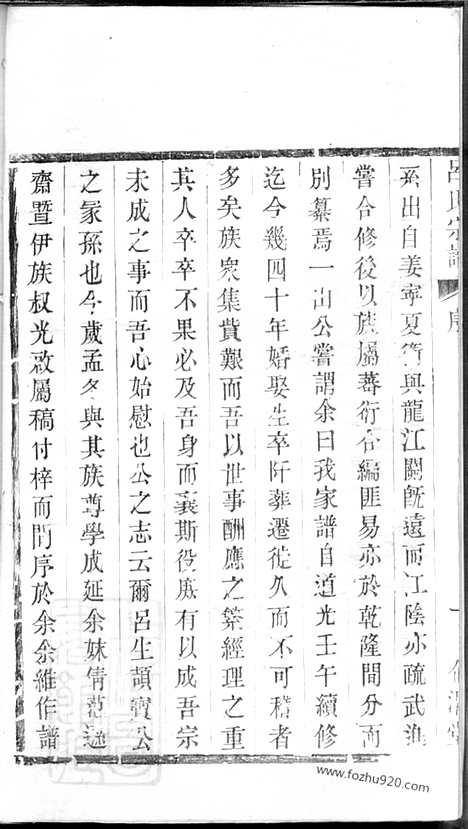 呂氏宗譜 序 一
系出自姜寧夏等與龍江闗旣遠而江陰亦疏武進
嘗合修後以族屬蕃衍合編匪易亦於乾隆間分而
別纂焉一出公嘗謂余曰我家譜自道光壬午續修
迄今幾四十年婚娶生卒阡葬遷徙久而不可稽者
多矣族衆集貲艱而吾以世事酬應之繁經理之重
其人卒卒不果必及吾身而襄斯役庶有以成吾宗
未成之事而吾心始慰也公之志云爾呂生頡賡公
之冢孫也今歲孟冬與其族尊學成延余妹倩范迦
齋暨伊族叔光啟屬稿付梓而問序於余余維作譜
www.fozhu920.com